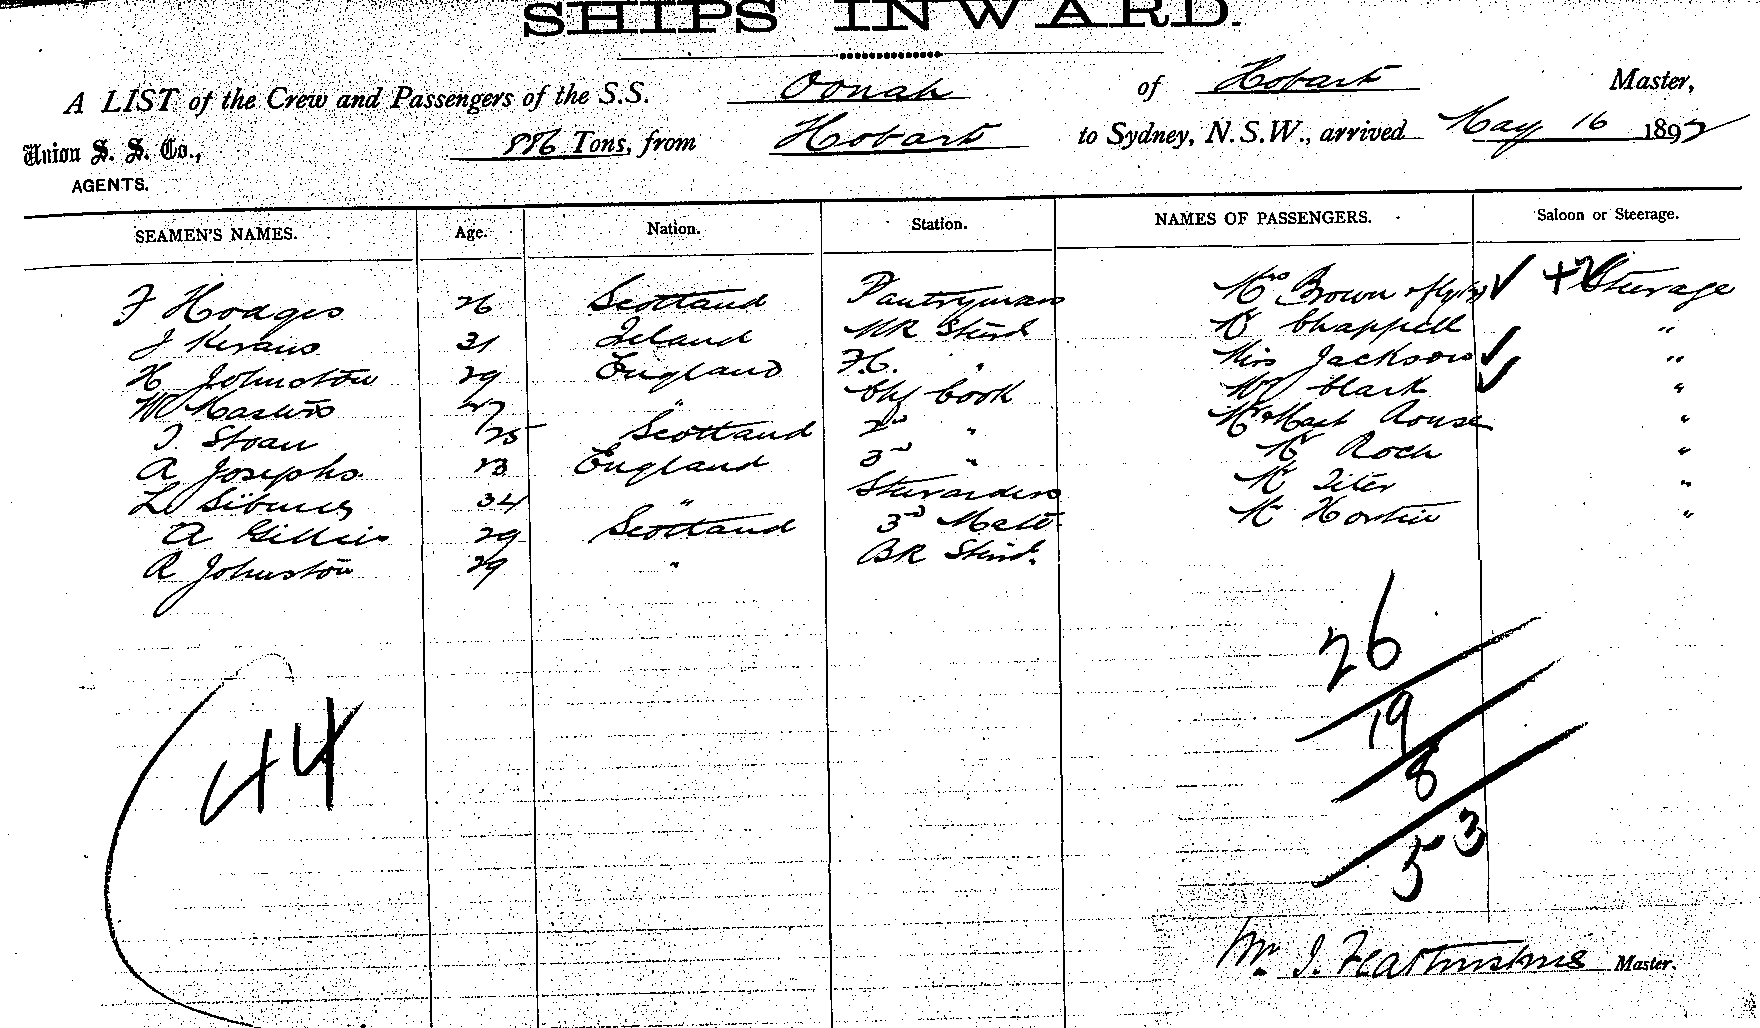 SHIPS INWARD.
A LIST of the Crew and Passengers of the S.S. Oonah of Hobart Master,
Union S. S. Co., Tons, from Hobart to Sydney, N.S.W., arrived May 16 189
AGENTS.
SEAMEN'S NAMES. Age. Nation. Station. NAMES OF PASSENGERS. Saloon or Steerage.
F Hodges 26 Scotland Pantryman Mrs Brown Steerage
J 31 Ireland Mr Chappell "
H Johnston 29 England " Miss Jackson "
W Masters 47 " Chf Cook Mr Clark "
Sloan 25 Scotland 2nd " Rouse "
A Josephs 23 England 3rd " Mr Roch "
L 34 " Stewardess Mr "
A Gillies 29 Scotland 3rd Mate Mr "
A Johnston 29 " BR Stwd.
26
19
8
44
53
Master.